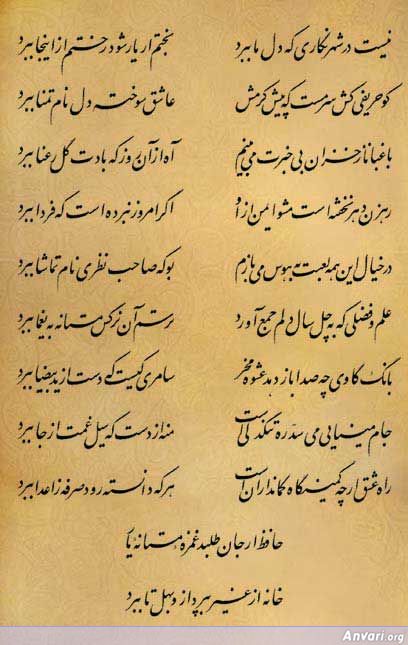 نیست در شهر نگاری که دل ما ببرد بختم ار یار شود رختم از اینجا ببرد
کو حریفی کش سرمست که پیش کرمش عاشق سوخته دل نام تمنا ببرد
باغبانا ز خزان بی خبرت می بینم آه از آن روز که بادت گل رعنا ببرد
رهزن دهر نخفته است مشو ایمن از او اگر امروز نبرده است که فردا ببرد
در خیال این همه لعبت به هوس می بازم بو که صاحب نظری نام تماشا ببرد
علم و فضلی که به چل سال دلم جمع آورد ترسم آن نرگس مستانه به یغما ببرد
بانگ گاوی چه صدا باز دهد عشوه مخر سامری کیست که دست از ید بیضا ببرد
جام مینایی می سد ره تنگدلی است منه از دست که سیل غمت از جا ببرد
راه عشق ار چه کمینگاه کمانداران است هر که دانسته رود صرفه ز اعدا ببرد
حافظ ار جان طلبد غمزه مستانه یار
خانه از غیر بپرداز و بهل تا ببرد
Anvari.org